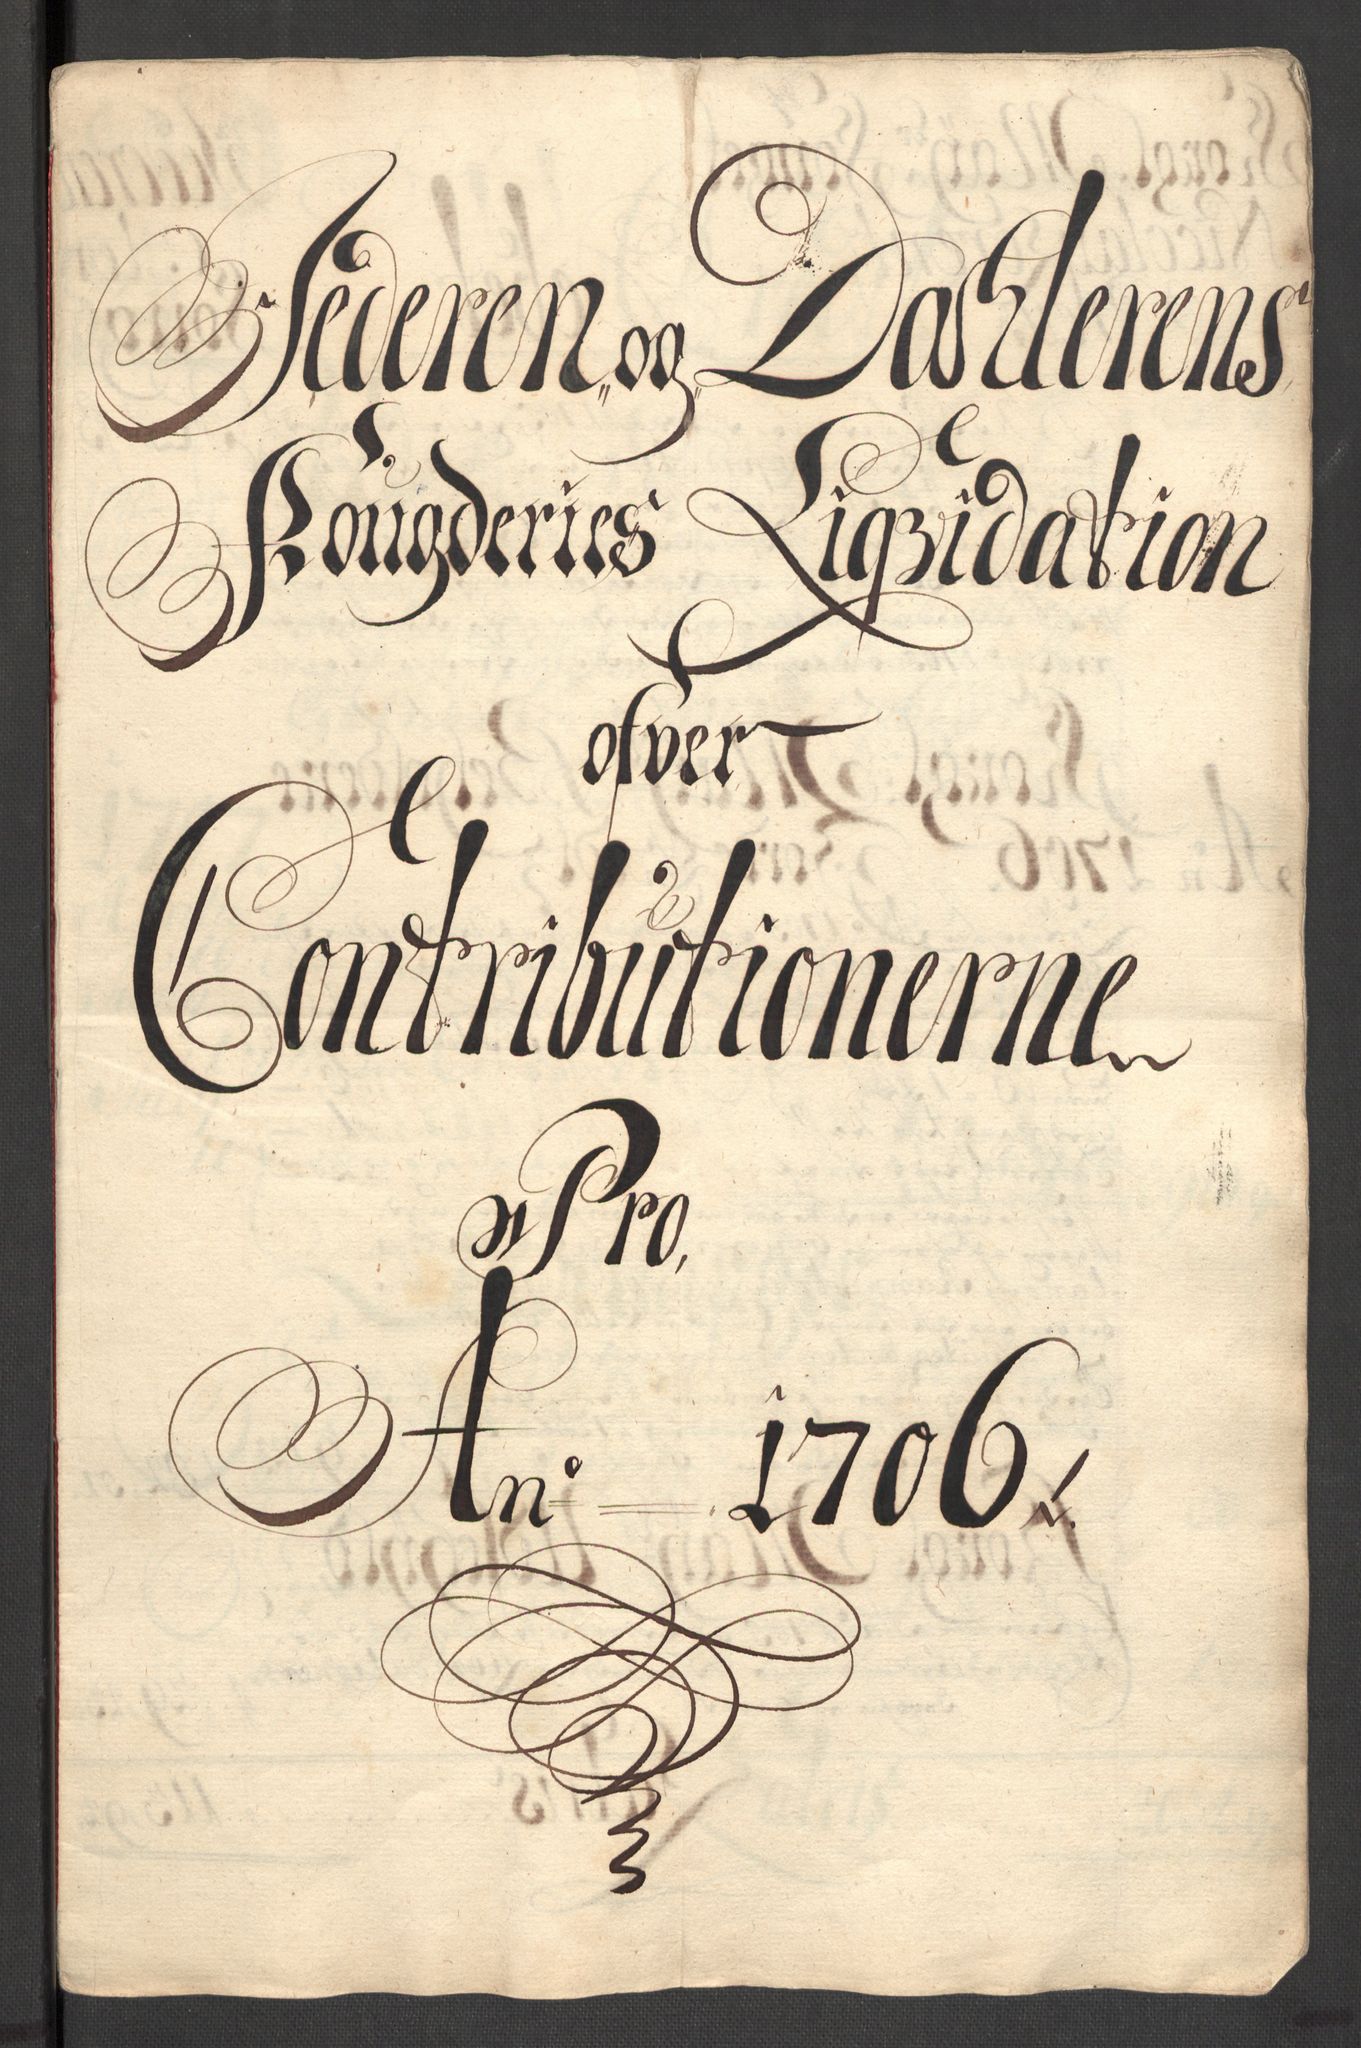 Jederen og Dahlerens
Fougderies Liqvidation
ofver
Contributionerne
Pro
An° 1706